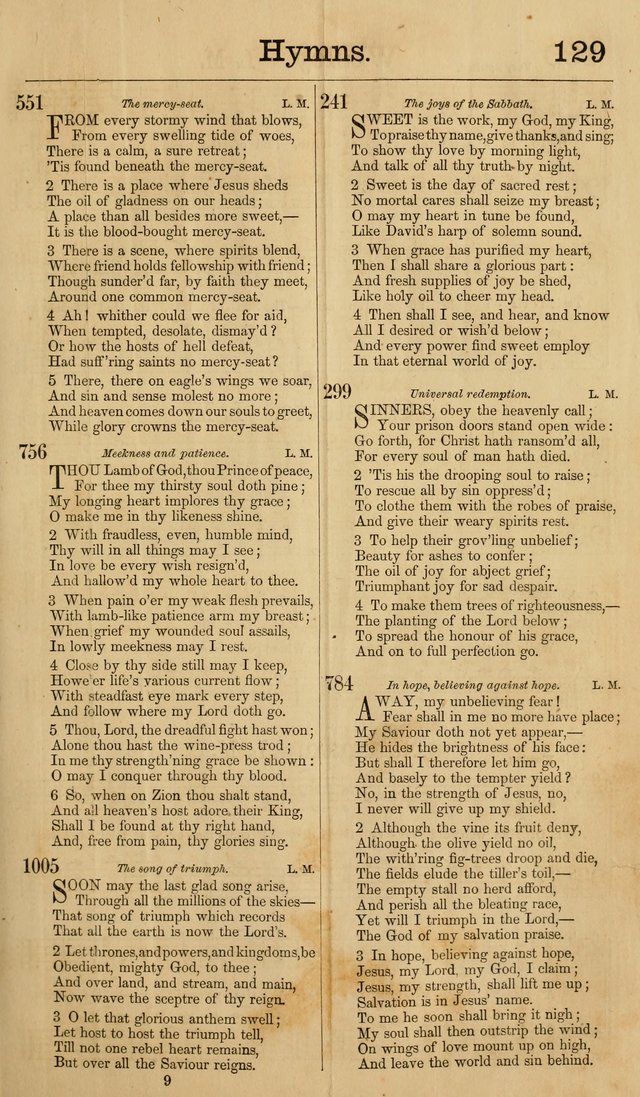 Hymns. 129
551 The mercy-seat. L. M.
FROM every stormy wind that blows,
From every swelling tide of woes,
There is a calm, a sure retreat;
'Tis found beneath the mercy-seat.
2 There is a place where Jesus sheds
The oil of gladness on our heads;
A place than all besides more sweet,—
It is the blood-bought mercy-seat.
3 There is a scene, where spirits blend,
Where friend holds fellowship with friend;
Though sunder'd far, by faith they meet,
Around one common mercy-seat.
4 Ah! whither could we flee for aid,
When tempted, desolate, dismay'd?
Or how the hosts of hell defeat,
Had suff'ring saints no mercy-seat?
5 There, there on eagle's wings we soar,
And sin and sense molest no more;
And heaven comes down our souls to greet,
While glory crowns the mercy-seat.
756 Meekness and patience. L. M.
THOU Lamb of God, thou Prince of peace,
For thee my thirsty soul doth pine;
My longing heart implores thy grace;
O make me in thy likeness shine.
2 With fraudless, even, humble mind,
Thy will in all things may I see;
In love be every wish resign'd,
And hallow'd my whole heart to thee.
3 When pain o'er my weak flesh prevails,
With lamb-like patience arm my breast;
When grief my wounded soul assails,
In lowly meekness may I rest.
4 Close by thy side still may I keep,
Howe'er life's various current flow;
With steadfast eye mark every step,
And follow where my Lord doth go.
5 Thou, Lord, the dreadful fight hast won;
Alone thou hast the wine-press trod;
In me thy strength'ning grace be shown:
O may I conquer through thy blood.
6 So, when on Zion thou shalt stand,
And all heaven's host adore their King,
Shall I be found at thy right hand,
And, free from pain, thy glories sing.
1005 The song of triumph. L. M.
SOON may the last glad song arise,
Through all the millions of the skies—
That song of triumph which records
That all the earth is now the Lord's.
2 Let thrones, and powers, and kingdoms, be
Obedient, mighty God, to thee;
And over land, and stream, and main,
Now wave the sceptre of thy reign.
3 O let that glorious anthem swell;
Let host to host the triumph tell,
Till not one rebel heart remains,
But over all the Saviour reigns.
9
241 The joys of the Sabbath. L. M.
SWEET is the work, my God, my King,
To praise thy name, give thanks, and sing;
To show thy love by morning light,
And talk of all thy truth by night.
2 Sweet is the day of sacred rest;
No mortal cares shall seize my breast;
O may my heart in tune be found,
Like David's harp of solemn sound.
3 When grace has purified my heart,
Then I shall share a glorious part:
And fresh supplies of joy be shed,
Like holy oil to cheer my head.
4 Then shall I see, and hear, and know
All I desired or wish'd below;
And every power find sweet employ
In that eternal world of joy.
299 Universal redemption. L. M.
SINNERS, obey the heavenly call;
Your prison doors stand open wide:
Go forth, for Christ hath ransom'd all,
For every soul of man hath died.
2 'Tis his the drooping soul to raise;
To rescue all by sin oppress'd;
To clothe them with the robes of praise,
And give their weary spirits rest.
3 To help their grov'ling unbelief;
Beauty for ashes to confer;
The oil of joy for abject grief;
Triumphant joy for sad despair.
4 To make them trees of righteousness,—
The planting of the Lord below;
To spread the honour of his grace,
And on to full perfection go.
784 In hope, believing against hope. L. M.
AWAY, my unbelieving fear!
Fear shall in me no more have place;
My Saviour doth not yet appear,—
He hides the brightness of his face:
But shall I therefore let him go,
And basely to the tempter yield?
No, in the strength of Jesus, no,
I never will give up my shield.
2 Although the vine its fruit deny,
Although the olive yield no oil,
The with'ring fig-trees droop and die,
The fields elude the tiller's toil,—
The empty stall no herd afford,
And perish all the bleating race,
Yet will I triumph in the Lord,—
The God of my salvation praise.
3 In hope, believing against hope,
Jesus, my Lord, my God, I claim;
Jesus, my strength, shall lift me up;
Salvation is in Jesus' name.
To me he soon shall bring it nigh;
My soul shall then outstrip the wind;
On wings of love mount up on high,
And leave the world and sin behind.